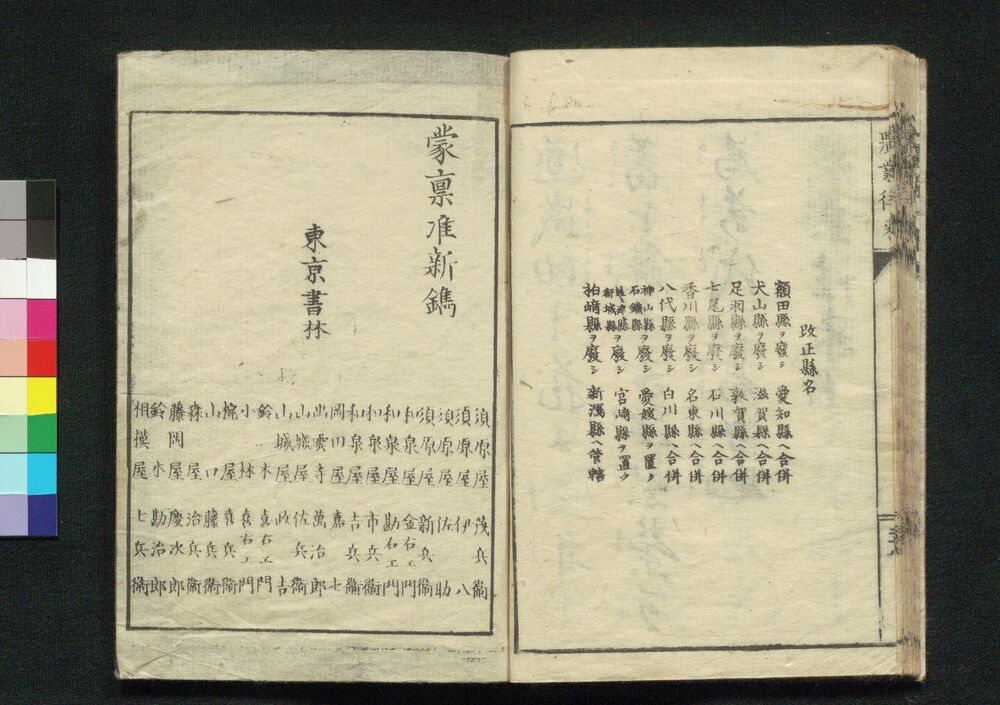 改正縣名
額田縣ヲ廢シ 愛知縣ヘ合併
犬山縣ヲ廢シ 滋賀縣ヘ合併
足羽縣ヲ廢シ 敦賀縣ヘ合併
七尾縣ヲ廢シ 石川縣ヘ合併
香川縣ヲ廢シ 名東縣ヘ合併
八代縣ヲ廢シ 白川縣ヘ合併
神山縣石鐡縣ヲ廢シ 愛媛縣ヲ置ク
美々津縣都城縣ヲ廢シ 宮崎縣ヲ置ク
柏﨑縣ヲ廢シ 新潟縣ヘ管轄
蒙稟准新鐫
東京書林
須原屋 茂兵衞
須原屋 伊八
須原屋 佐助
須原屋 新兵衞
和泉屋 金右エ門
和泉屋 勘右エ門
和泉屋 市兵衞
和泉屋 吉兵衞
岡田屋 嘉七
出雲寺 萬治郎
山城屋 佐兵衞
山城屋 政吉
鈴木 喜右エ門
小林 喜右エ門
椀屋 喜兵衞
山口 藤兵衞
森屋 治兵衞
藤岡屋 慶次郎
鈴木 勘治郎
相摸屋 七兵衞